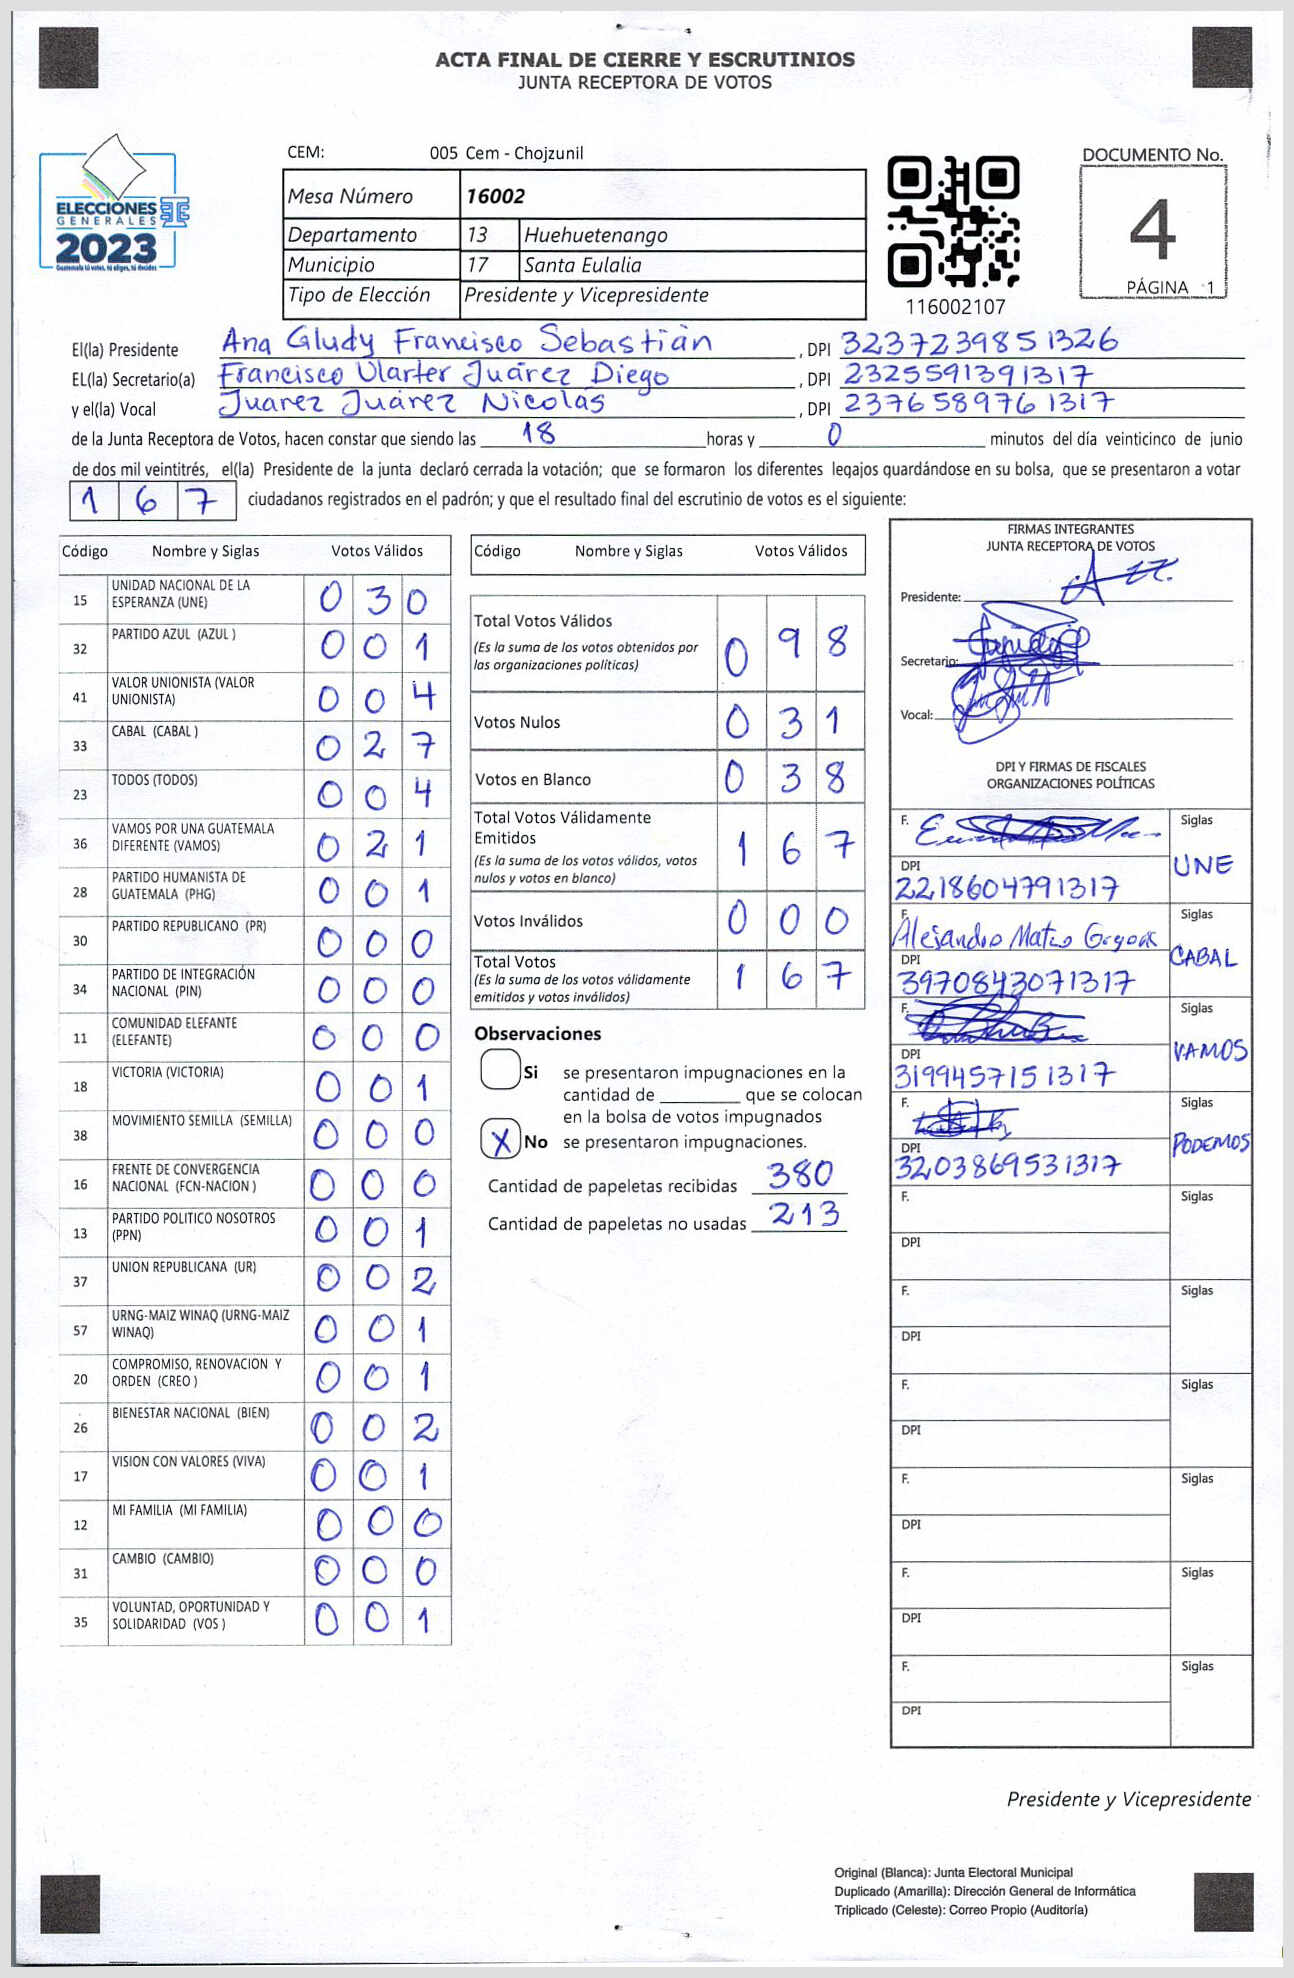 ACTA FINAL DE CIERRE Y ESCRUTINIOS
JUNTA RECEPTORA DE VOTOS
ELECCIONES
GENERALES
2023
Guatemala tú votas, tú eliges, tú decides
CEM: 005 Cem - Chojzunil
Mesa Número 16002
Departamento 13 Huehuetenango
Municipio 17 Santa Eulalia
Tipo de Elección Presidente y Vicepresidente
116002107
DOCUMENTO No.
4
PÁGINA 1
El(la) Presidente Ana Gludy Francisco Sebastián, DPI 3237239851326
EL(la) Secretario(a) Francisco Ularter Juárez Diego, DPI 2325591391317
y el(la) Vocal Juarez Juárez Nicolás, DPI 2376589761317
de la Junta Receptora de Votos, hacen constar que siendo las 18 horas y 0 minutos del día veinticinco de junio
de dos mil veintitrés, el(la) Presidente de la junta declaró cerrada la votación; que se formaron los diferentes legajos guardándose en su bolsa, que se presentaron a votar
167 ciudadanos registrados en el padrón; y que el resultado final del escrutinio de votos es el siguiente:
Código Nombre y Siglas Votos Válidos
15 UNIDAD NACIONAL DE LA ESPERANZA (UNE) 030
32 PARTIDO AZUL (AZUL ) 001
41 VALOR UNIONISTA (VALOR UNIONISTA) 004
33 CABAL (CABAL ) 027
23 TODOS (TODOS) 004
36 VAMOS POR UNA GUATEMALA DIFERENTE (VAMOS) 021
28 PARTIDO HUMANISTA DE GUATEMALA (PHG) 001
30 PARTIDO REPUBLICANO (PR) 000
34 PARTIDO DE INTEGRACIÓN NACIONAL (PIN) 000
11 COMUNIDAD ELEFANTE (ELEFANTE) 000
18 VICTORIA (VICTORIA) 001
38 MOVIMIENTO SEMILLA (SEMILLA) 000
16 FRENTE DE CONVERGENCIA NACIONAL (FCN-NACION ) 000
13 PARTIDO POLITICO NOSOTROS (PPN) 001
37 UNION REPUBLICANA (UR) 002
57 URNG-MAIZ WINAQ (URNG-MAIZ WINAQ) 001
20 COMPROMISO, RENOVACION Y ORDEN (CREO ) 001
26 BIENESTAR NACIONAL (BIEN) 002
17 VISION CON VALORES (VIVA) 001
12 MI FAMILIA (MI FAMILIA) 000
31 CAMBIO (CAMBIO) 000
35 VOLUNTAD, OPORTUNIDAD Y SOLIDARIDAD (VOS ) 001
Código Nombre y Siglas Votos Válidos
Total Votos Válidos 098
(Es la suma de los votos obtenidos por
las organizaciones políticas)
Votos Nulos 031
Votos en Blanco 038
Total Votos Válidamente
Emitidos 167
(Es la suma de los votos válidos, votos
nulos y votos en blanco)
Votos Inválidos 000
Total Votos 167
(Es la suma de los votos válidamente
emitidos y votos inválidos)
Observaciones
Si se presentaron impugnaciones en la
cantidad de ________ que se colocan
en la bolsa de votos impugnados
X No se presentaron impugnaciones.
Cantidad de papeletas recibidas 380
Cantidad de papeletas no usadas 213
FIRMAS INTEGRANTES
JUNTA RECEPTORA DE VOTOS
Presidente:
Secretario:
Vocal:
DPI Y FIRMAS DE FISCALES
ORGANIZACIONES POLÍTICAS
F. Siglas
UNE
DPI
2218604791317
F. Siglas
Alejandro Mateo
CABAL
DPI
3970843071317
F. Siglas
VAMOS
DPI
3199457151317
F. Siglas
PODEMOS
DPI
3203869531317
F. Siglas
DPI
F. Siglas
DPI
F. Siglas
DPI
F. Siglas
DPI
F. Siglas
DPI
F. Siglas
DPI
Presidente y Vicepresidente
Original (Blanca): Junta Electoral Municipal
Duplicado (Amarilla): Dirección General de Informática
Triplicado (Celeste): Correo Propio (Auditoría)